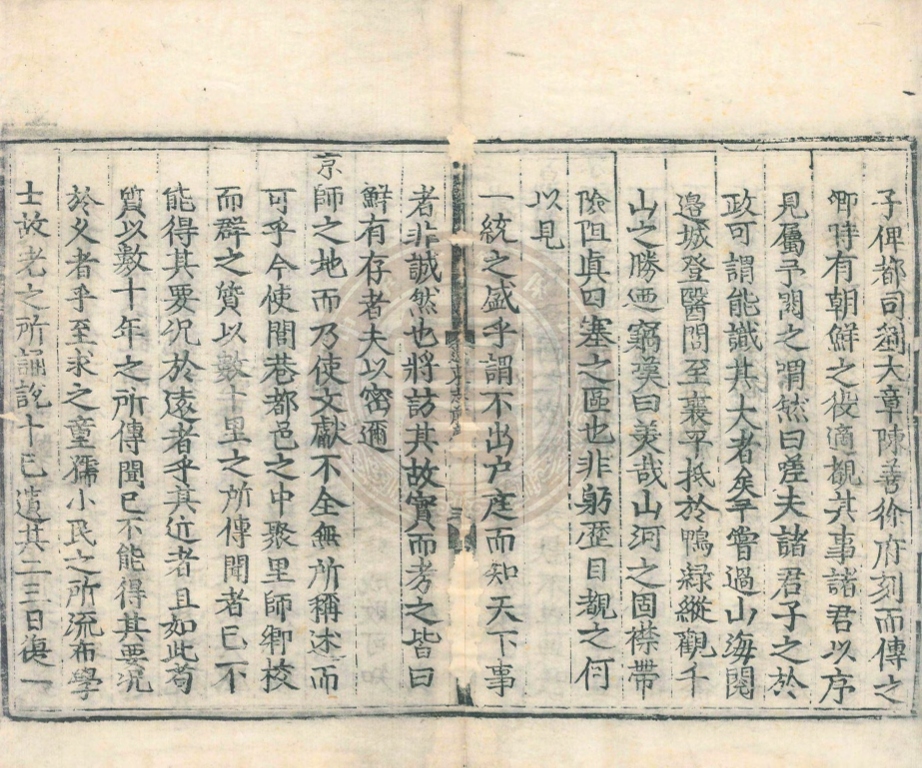 子俾都司劉大章陳善徐府刻而傳之
卿時有朝鮮之役適觀其事諸君以序
見屬予閱之喟然曰嗟夫諸君子之於
政可謂能識其大者矣予嘗過山海閱
邊城登醫閭至襄平抵於鴨綠縱觀千
山之勝迺竊嘆曰美哉山河之固襟帶
險阻真四塞之區也非躬歷目覩之何
以見
一統之盛乎謂不出户庭而知天下事
者非誠然也將訪其故實而考之皆曰
鮮有存者夫以密邇
京師之地而乃使文獻不全無所稱述而
可乎今使閭巷都邑之中聚里師鄉校
而群之質以數十里之所傳聞者已不
能得其要况於遠者乎其近者且如此苟
質以數十年之所傳聞已不能得其要况
於久者乎至求之童孺小民之所流布學
士故老之所誦說十已遺其二三日復一